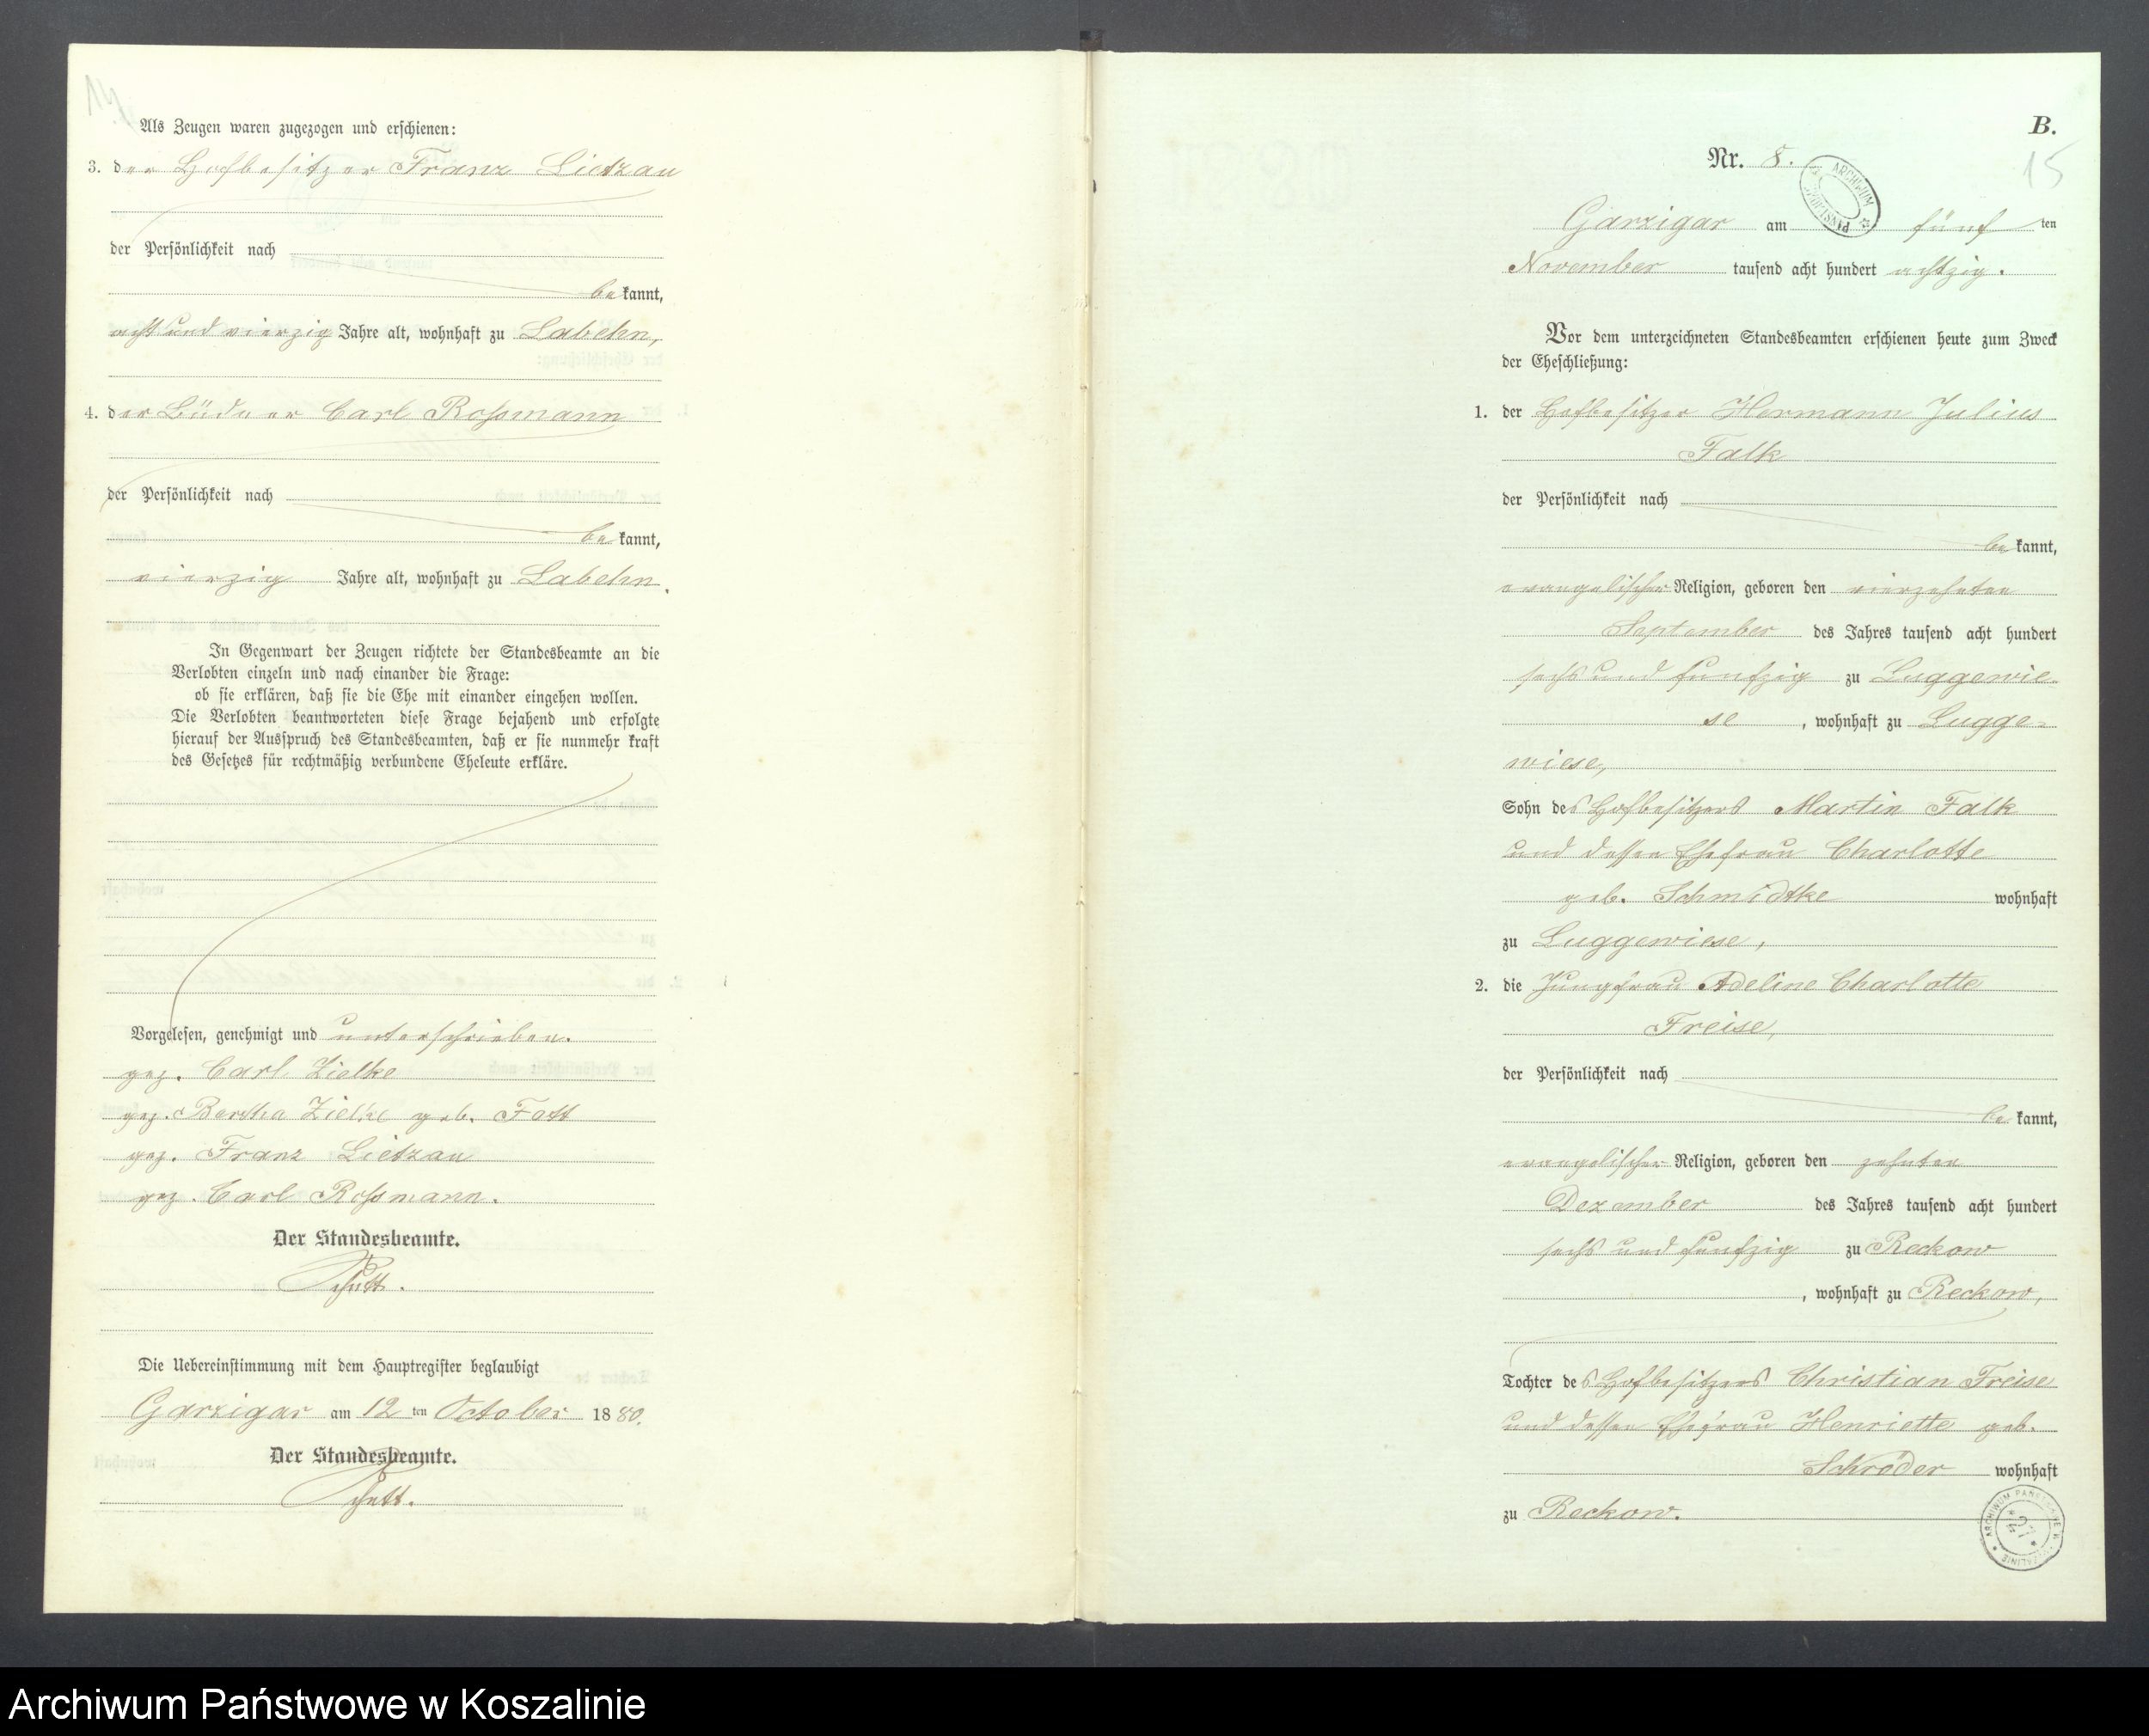 Als Zeugen waren zugezogen und erschienen:
3. der Hofbesitzer Franz Lietzau
der Persönlichkeit nach
bekannt,
acht und vierzig Jahre alt, wohnhaft zu Labehn,
4. der Büdner Carl Roßmann
der Persönlichkeit nach
bekannt,
vierzig Jahre alt, wohnhaft zu Labehn.
In Gegenwart der Zeugen richtete der Standesbeamte an die
Verlobten einzeln und nach einander die Frage:
ob sie erklären, daß sie die Ehe mit einander eingehen wollen.
Die Verlobten beantworteten diese Frage bejahend und erfolgte
hierauf der Ausspruch des Standesbeamten, daß er sie nunmehr kraft
des Gesetzes für rechtmäßig verbundene Eheleute erkläre.
Vorgelesen, genehmigt und unterschrieben.
gez. Carl Zielke
gez. Bertha Zielke geb. Fott
gez. Franz Lietzau
gez. Carl Roßmann.
Der Standesbeamte.
Die Uebereinstimmung mit dem Hauptregister beglaubigt
Garzigar am 12 ten October 1880.
Der Standesbeamte.
B.
15
Nr. 8.
Garzigar am fünf ten
November tausend acht hundert achtzig.
Vor dem unterzeichneten Standesbeamten erschienen heute zum Zweck
der Eheschließung:
1. der Hofbesitzer Hermann Julius
Falk
der Persönlichkeit nach
bekannt,
evangelischer Religion, geboren den vierzehnten
September des Jahres tausend acht hundert
sechs und funfzig zu Luggewie-
se, wohnhaft zu Lugge-
wiese,
Sohn des Hofbesitzers Martin Falk
und dessen Ehefrau Charlotte
geb. Schmidtke wohnhaft
zu Luggewiese,
2. die Jungfrau Adeline Charlotte
Freise,
der Persönlichkeit nach
bekannt,
evangelischer Religion, geboren den zehnten
Dezember des Jahres tausend acht hundert
sechs und funfzig zu Reckow
, wohnhaft zu Reckow,
Tochter des Hofbesitzers Christian Freise
und dessen Ehefrau Henriette geb.
Schröder wohnhaft
zu Reckow.
Archiwum Państwowe w Koszalinie